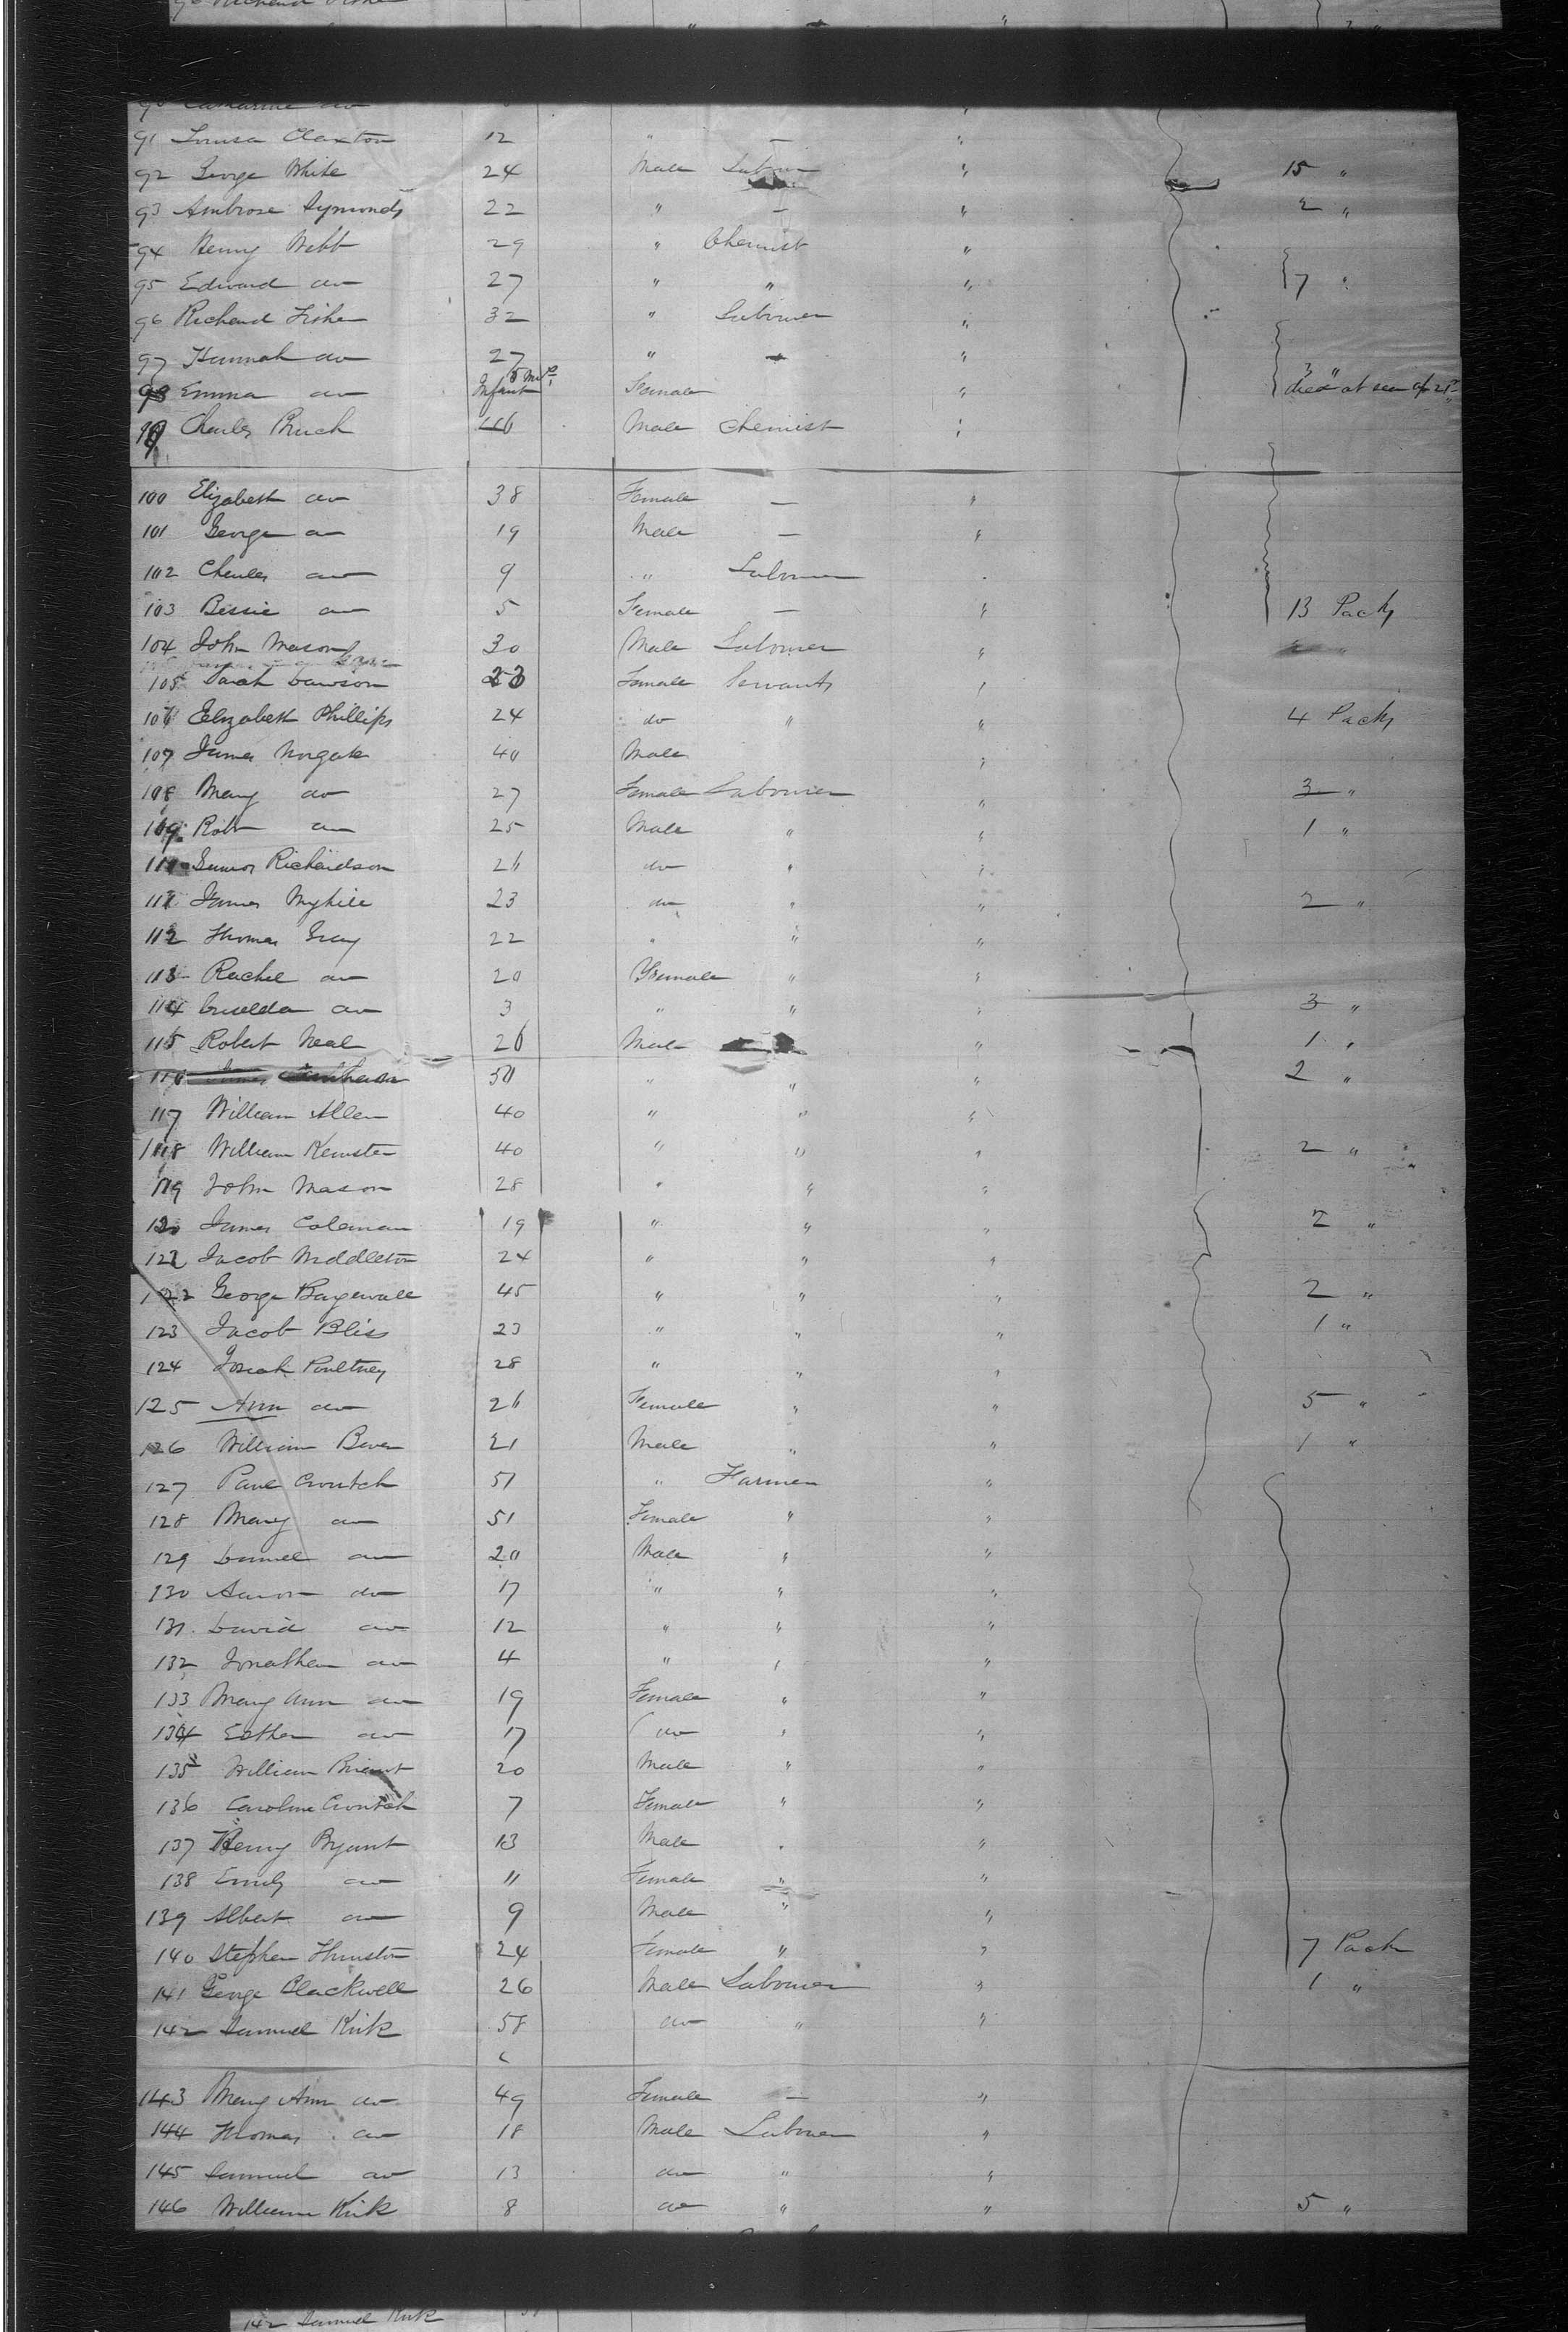 91 Louisa Claxton 12 " — "
92 George White 24 Male Labour " 15 "
93 Ambrose Symonds 22 " — " 2 "
94 Henry Webb 29 " Chemist "
95 Edward do 27 " " " 7 "
96 Richard Fisher 32 " Labourer "
97 Hannah do 27 " — " 3 "
98 Emma do Infant Female " died at sea
99 Charles Male Chemist "
100 Elizabeth do 38 Female — "
101 George do 19 Male — "
102 Charles do 9 " Labourer
103 Bessie do 5 Female — " 13 Packs
104 John Mason 30 Male Labourer "
105 Sarah Dawson Female Servants "
106 Elizabeth Phillips 24 do " " 4 Packs
107 James Norgate 40 Male "
108 Mary do 27 Female Labourer " 3 "
109 Robt do 25 Male " " 1 "
110 Richardson 26 do " "
111 James Myhile 23 do " " 2 "
112 Thomas Gray 22 " " "
113 Rachel do 20 Female " "
114 do 3 " " " 3 "
115 Robert Neal 26 Male " 1 "
116 50 " " " 2 "
117 William Allen 40 " " "
118 William Kemster 40 " " " 2 "
119 John Mason 28 " " "
120 James Coleman 19 " " " 2 "
121 Jacob Middleton 24 " " "
122 George 45 " " " 2 "
123 Jacob Bliss 23 " " " 1 "
124 Josiah Poultney 28 " " "
125 Ann do 26 Female " " 5 "
126 William 21 Male " " 1 "
127 Paul Croutch 51 " Farmer "
128 Mary do 51 Female " "
129 Daniel do 20 Male " "
130 Aaron do 17 " " "
131 David do 12 " " "
132 Jonathan do 4 " " "
133 Mary Ann do 19 Female " "
134 Esther do 17 do " "
135 William Briant 20 Male " "
136 Caroline Croutch 7 Female " "
137 Henry Bryant 13 Male " "
138 Emily do 11 Female " "
139 Albert do 9 Male " "
140 Stephen 24 Female " " 7 Pack
141 George Clackwell 26 Male Labourer " 1 "
142 Samuel Kirk 58 do " "
143 Mary Ann do 49 Female — "
144 Thomas do 18 Male Labourer "
145 Samuel do 13 do " "
146 William Kirk 8 do " " 5 "
142 Samuel Kirk